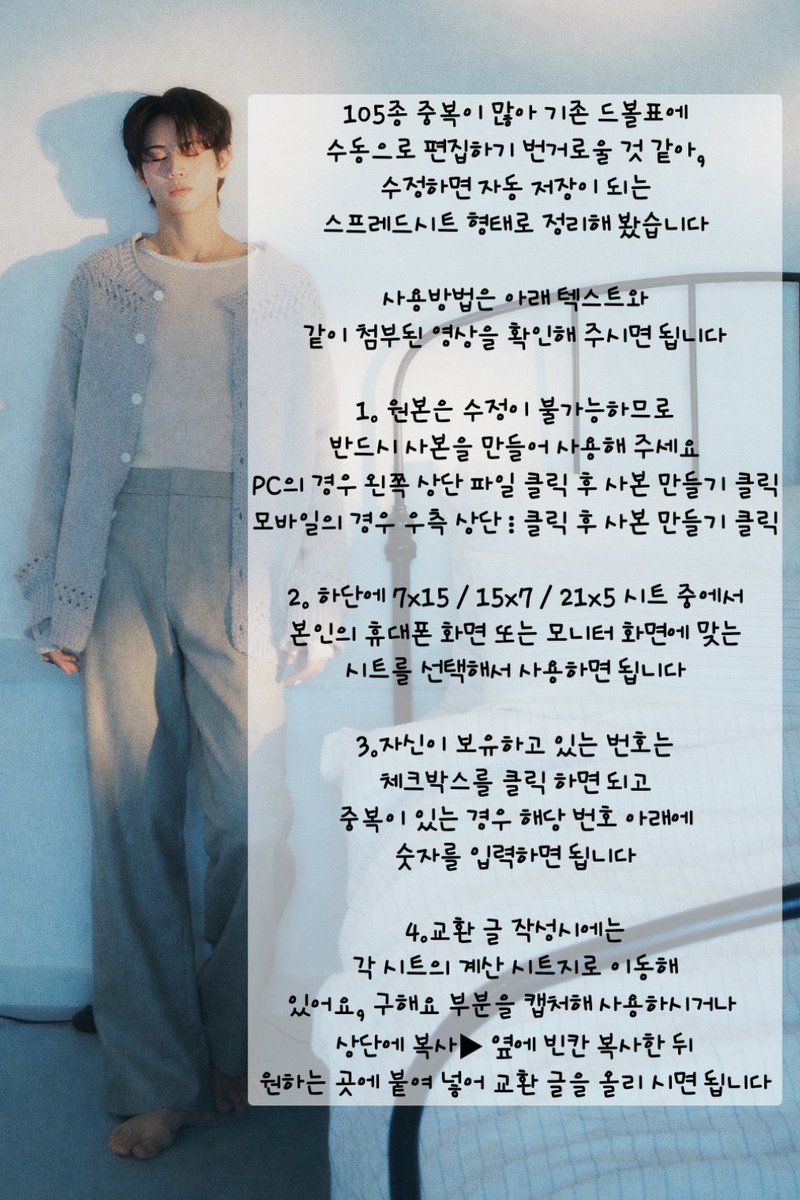 105종 중복이 많아 기존 드볼표에
수동으로 편집하기 번거로울 것 같아,
수정하면 자동 저장이 되는
스프레드시트 형태로 정리해 봤습니다
사용방법은 아래 텍스트와
같이 첨부된 영상을 확인해 주시면 됩니다
1. 원본은 수정이 불가능하므로
반드시 사본을 만들어 사용해 주세요
PC의 경우 왼쪽 상단 파일 클릭 후 사본 만들기 클릭
모바일의 경우 우측 상단 : 클릭 후 사본 만들기 클릭
2. 하단에 7x15 / 15x7 / 21x5 시트 중에서
본인의 휴대폰 화면 또는 모니터 화면에 맞는
시트를 선택해서 사용하면 됩니다
3.자신이 보유하고 있는 번호는
체크박스를 클릭 하면 되고
중복이 있는 경우 해당 번호 아래에
숫자를 입력하면 됩니다
4.교환 글 작성시에는
각 시트의 계산 시트지로 이동해
있어요, 구해요 부분을 캡처해 사용하시거나
상단에 복사▶ 옆에 빈칸 복사한 뒤
원하는 곳에 붙여 넣어 교환 글을 올리 시면 됩니다